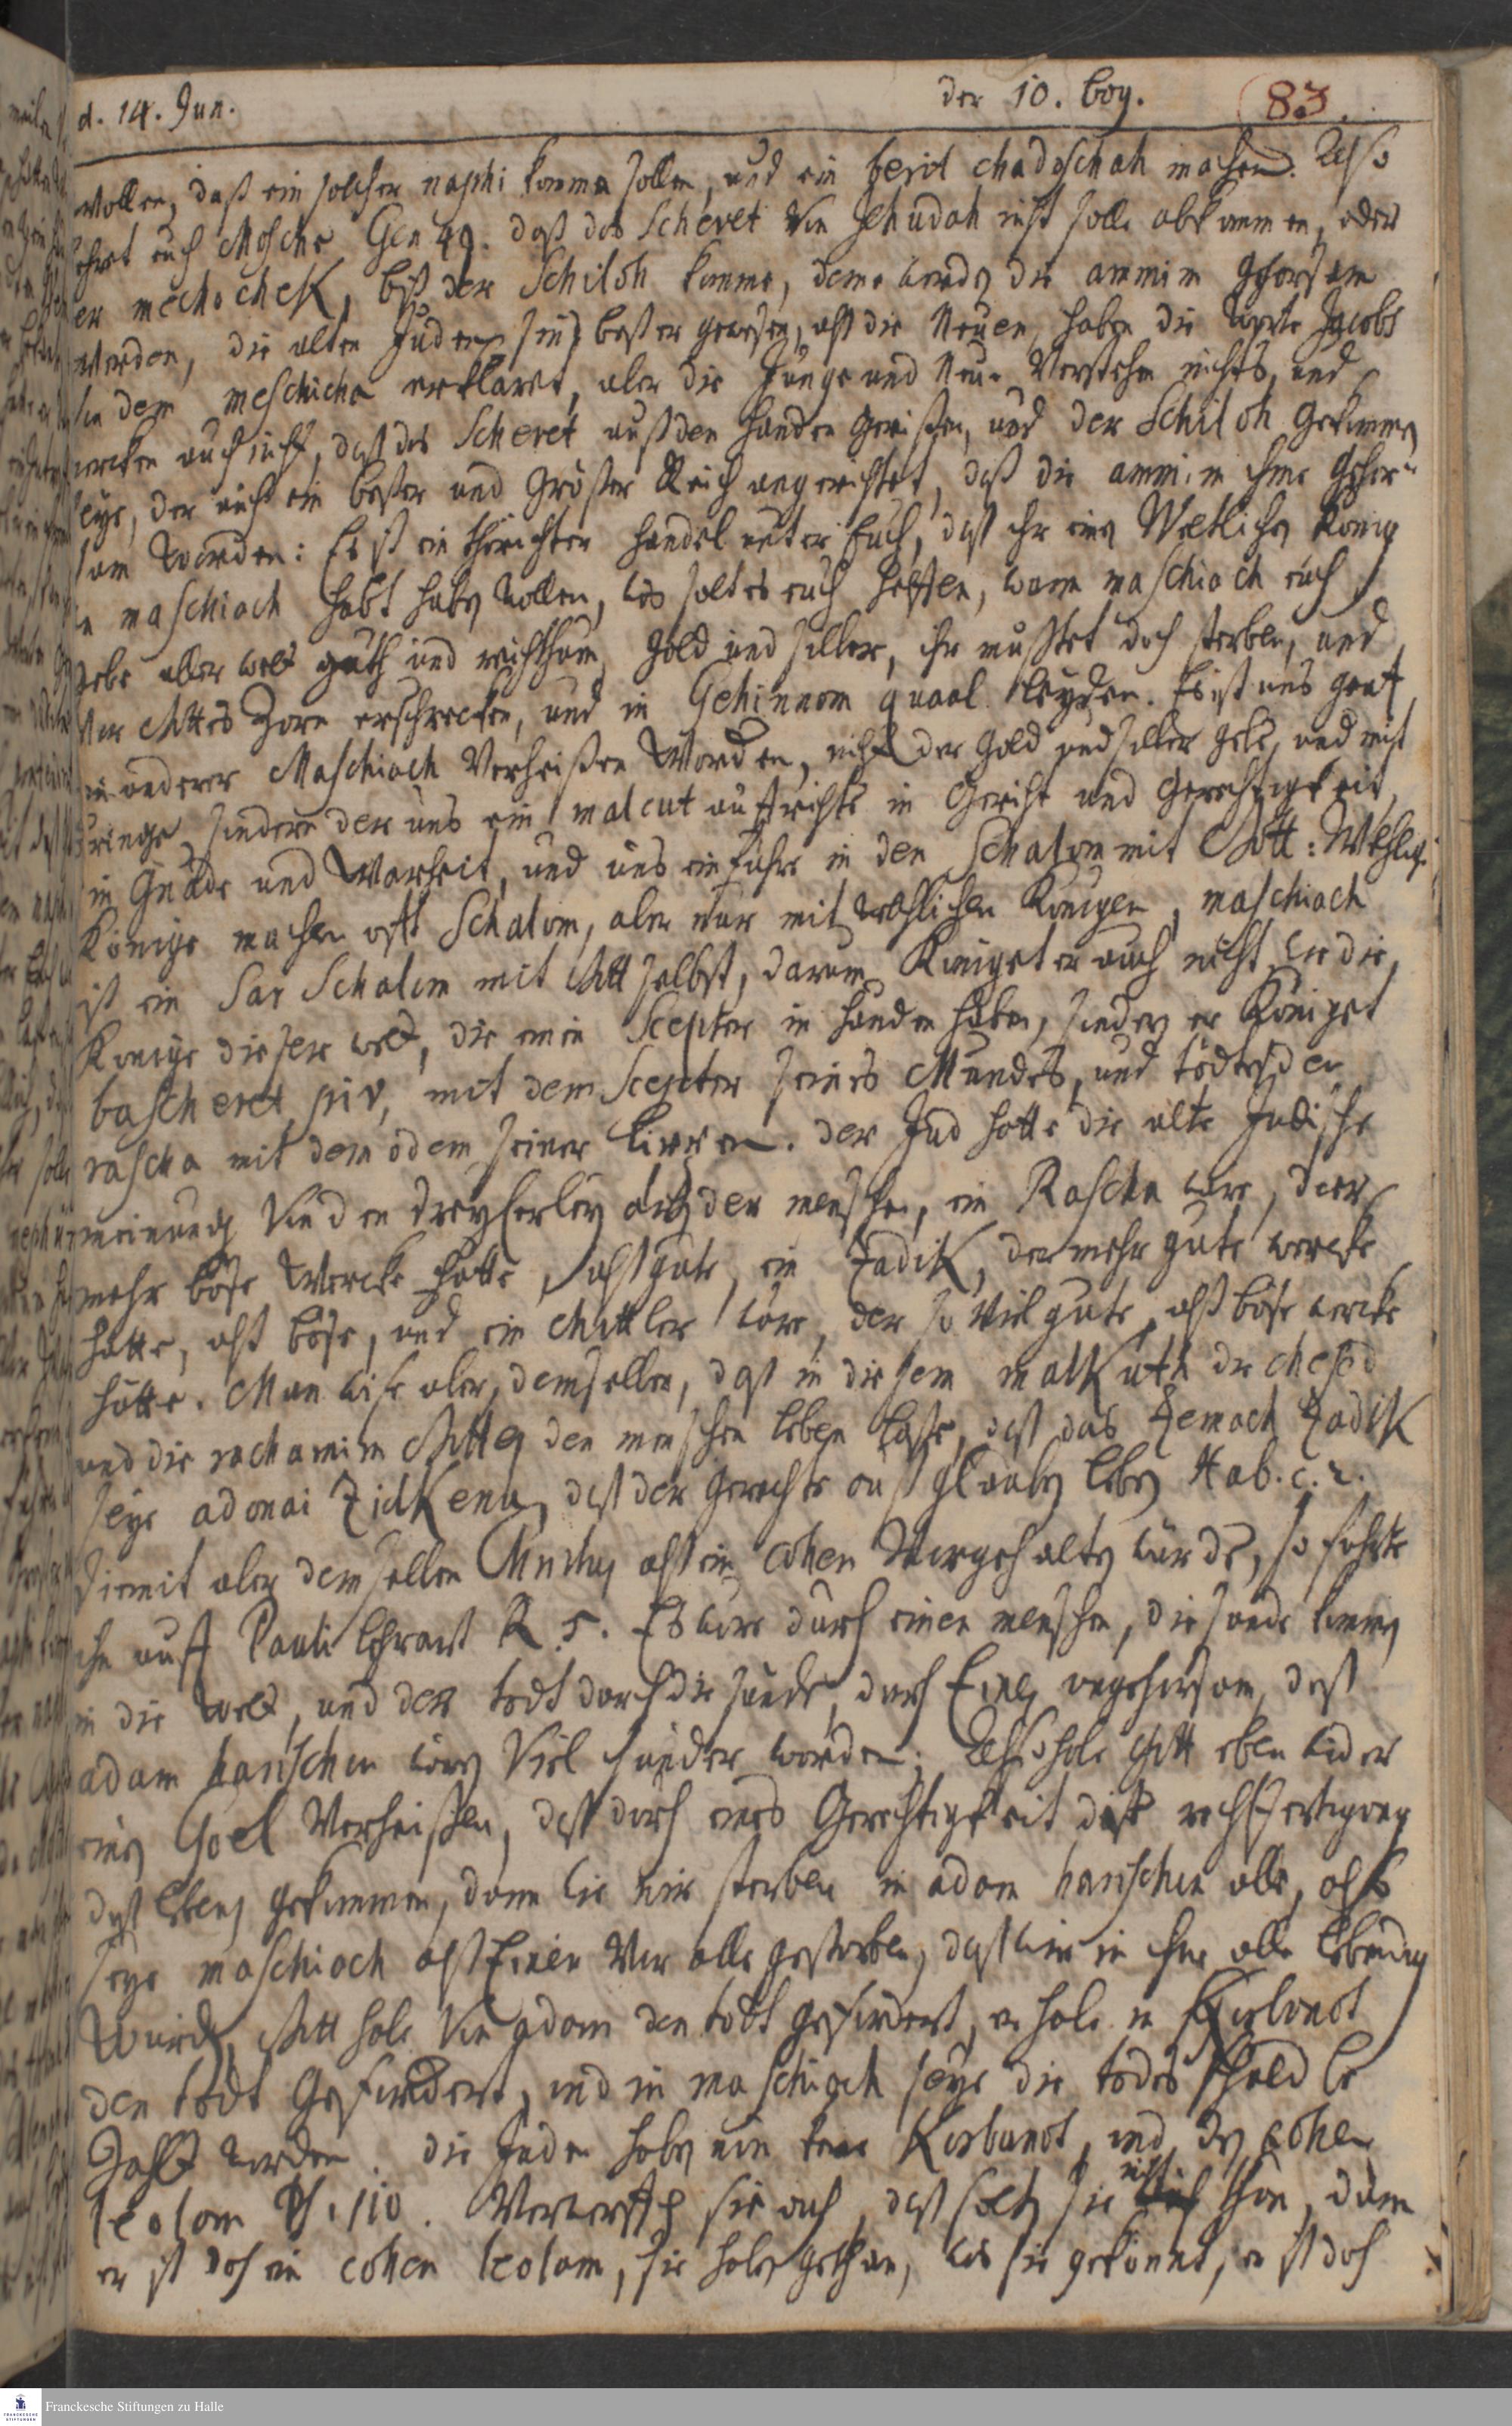 d. 14. Jun. der 10. Bog. 83.
wollen, daß ein solcher naphi komme sollen, und ein berit chadaschah machen. Also
lehret euch Mosche Gen 49. daß das Schevet von Jehudah nicht solle abkommen, oder
der mechochek, biß der Schiloh komme, deme werdẽ die ammim gehorsam
werden, die alten Juden sind beßer gewesen, alß die Neuen, haben die Worte Jacobs
von dem meschicha erklärt, aber die Junge und Neue verstehen nichts, und
mercken auch nicht, daß das Schevet auß den Händen gerißen, und der Schiloh gekommẽ
seye, der auch ein beßer und größer Reich angerichtet, daß die ammim ihme gehor-
sam werden: Es ist ein thörichter Handel unter Euch, daß ihr einẽ Weltlichẽ König
in maschiach habt habẽ wollen, was solt es euch helffen, wann maschiach euch
gebe aller welt guth und reichthum, Gold und silber, ihr müßtet doch sterben, und
vor Gottes Zorn erschrecken, und in Gehinnom quaal leyden. Es ist uns
ein anderer Maschiach verheißen worden, nicht der Gold und silber gebe, und mit
bringe, sondern der uns ein malcut aufrichte in Gericht und Gerechtigkeit,
in Gnade und Warheit, und uns einführe in den Schalom mit Gott: Weltliche
Könige machen offt Schalom, aber nur mit weltlichen Königen, maschiach
ist ein Sar Schalom mit Gott selbst, darum Königet er auch nicht wie die
Könige dieser welt, die einen Scepter in Handen haben, sondern er Königet
bascheret piv, mit dem Scepter seines Mundes, und tödtet den
rascha mit dem odem seiner Lippen. der Jud hatte die alte Jüdische
meinung von den dreyerley der menschen, ein Rascha wäre, der
mehr böse Wercke hätte, alß gute, ein Zadik, der mehr gute wercke
hätte, alß böse, und ein Mittler wäre, der so viel gute, alß böse wercke
hätte. Man wise aber demselben, daß in diesem malkuth die chesed
und die rachamim Gottes den menschen leben laße, daß das Zemach Zadik
seye adonai Zidkenu, daß der Gerechte auß Glaubẽ lebe Hab. c. 2.
Damit aber demselben Christus alß ein cohen vorgehaltẽ würde, so führte
ihn auff Pauli R. 5. Es wäre durch einen menschen, die sünde kommẽ
in die Welt, und der todt durch die sünde, durch Einẽ ungehorsam, deß
adam harischon wärẽ Viel sünder worden; Also habe Gott eben wieder
einẽ Goel verheißen, daß durch eines Gerechtigkeit die rechtfertigung
deß lebens gekommen, dann wie wir sterben in adam harischon alle, also
seye maschiach alß Einer vor alle gestorben, daß wir in ihm alle lebendig
würdẽ, Gott habe von adam den todt gefordert, er habe in Korbanot
den todt gefordert, und in maschiach seye die todes schuld be
zahlt worden. die Juden habẽ nun keine Korbanot, und den cohen
leolam Ps. 110. verwerffẽ sie auch, daß soltẽ sie nicht thun, dann
er ist doch ein cohen leolam, sie habẽ gethan, was sie gekönnt, er ist doch
Franckesche Stiftungen zu Halle